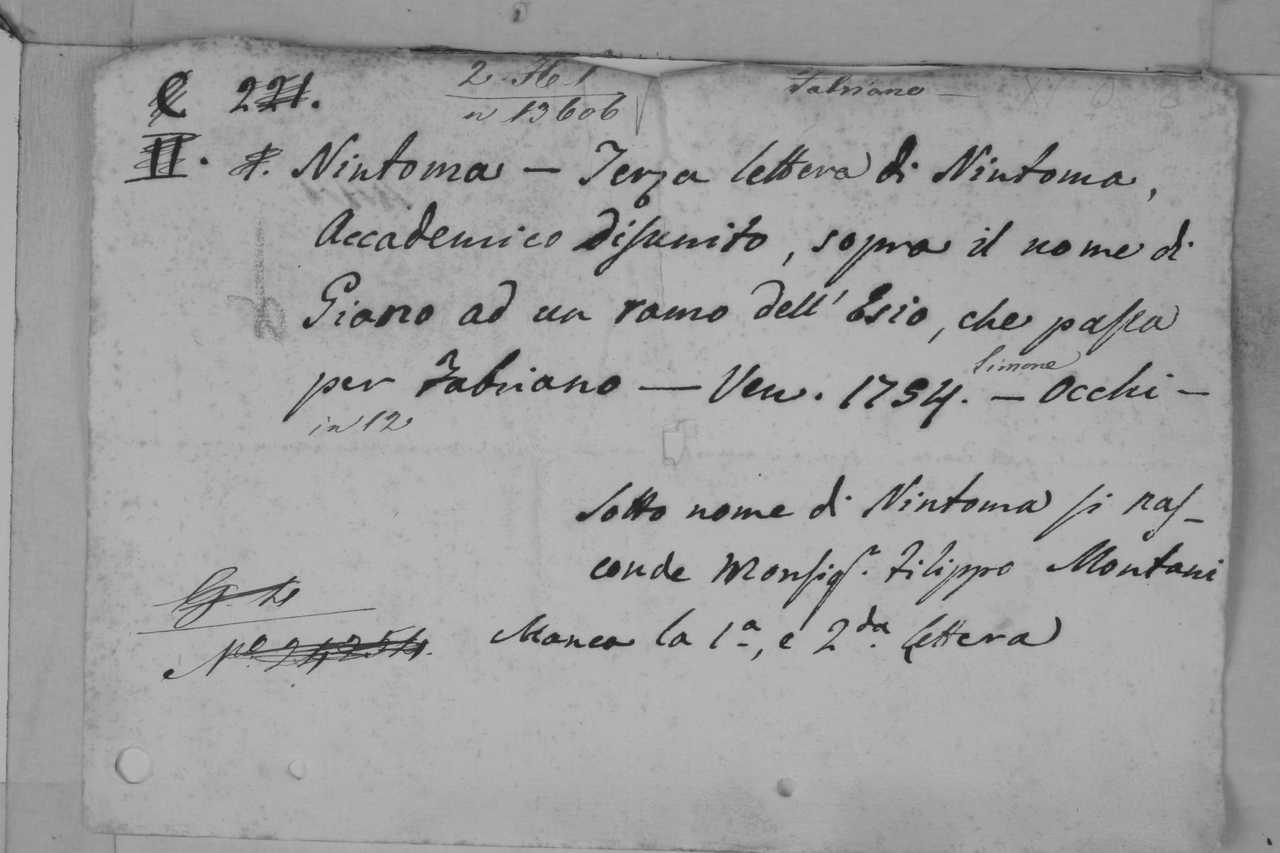 2
n 13606
Fabriano —
II. Nintoma — Terza lettera di Nintoma,
Accademico disunito, sopra il nome di
Giano ad un ramo dell' Esio, che passa
per Fabriano — Ven. 1754. — Simone Occhi —
in 12
Sotto nome di Nintoma si nas-
conde Monsigr. Filippo Montani
Manca la 1a, e 2da. lettera